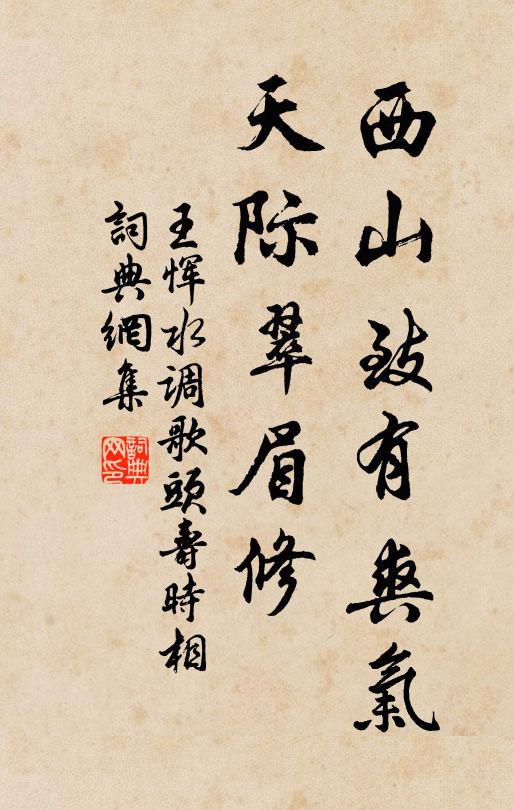 西山致有爽氣
天际翠眉修
王恽水调歌頭壽時相
詞典網集
詞典網印